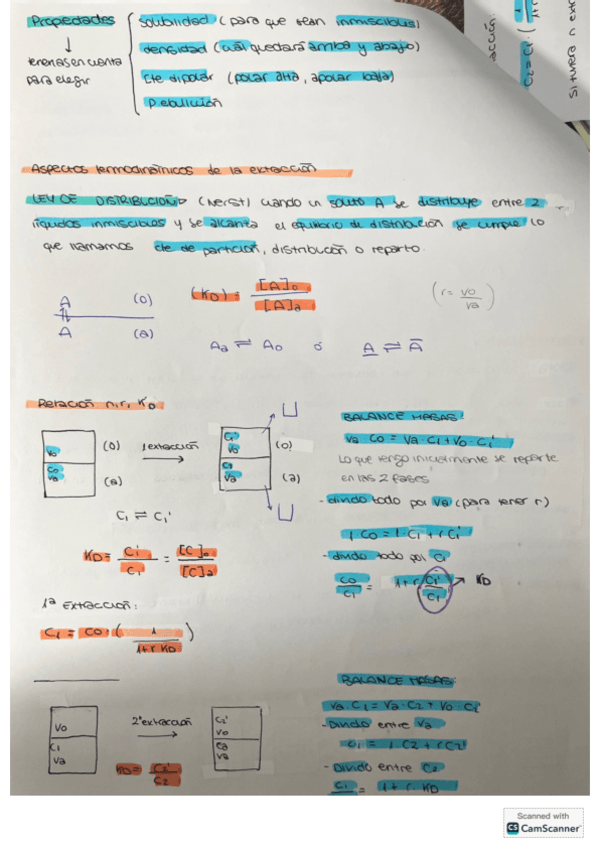 Propiedades
↓
tenerlas en cuenta
para elegir
solubilidad (para que sean inmiscibles)
densidad (cuál quedará arriba y abajo)
cte dipolar (polar alta, apolar baja)
P ebullición
acción.
C2 = C1 · (
si tuviera n extr
Aspectos termodinámicos de la extracción
LEY DE DISTRIBUCIÓN (Nerst) cuando un soluto A se distribuye entre 2
líquidos inmiscibles y se alcanza el equilibrio de distribución se cumple lo
que llamamos cte de partición, distribución o reparto.
A (o)
⇅
A (a)
(KD) = [A]o / [A]a
(r = Vo / Va)
Aa ⇌ Ao ó A ⇌ Ā
Relación n, r, KD
Vo (o)
Co
Va (a)
1 extracción →
C1'
Vo (o)
Va (a)
C1 ⇌ C1'
KD = C1' / C1 = [C]o / [C]a
1ª EXTRACCIÓN:
C1 = Co · (1 / 1+r KD)
BALANCE MASAS:
Va Co = Va · C1 + Vo · C1'
Lo que tengo inicialmente se reparte
en las 2 fases
- divido todo por Va (para tener r)
1 Co = 1 C1 + r C1'
- divido todo por C1
Co / C1 = 1 + r (C1' / C1) → KD
Vo
C1
Va
2ª extracción →
C2'
Vo
Va
KD = C2' / C2
BALANCE MASAS:
Va C1 = Va · C2 + Vo · C2'
- Divido entre Va
C1 = 1 · C2 + r C2'
- Divido entre C2
C1 = 1 + r · KD
Scanned with
CS CamScanner